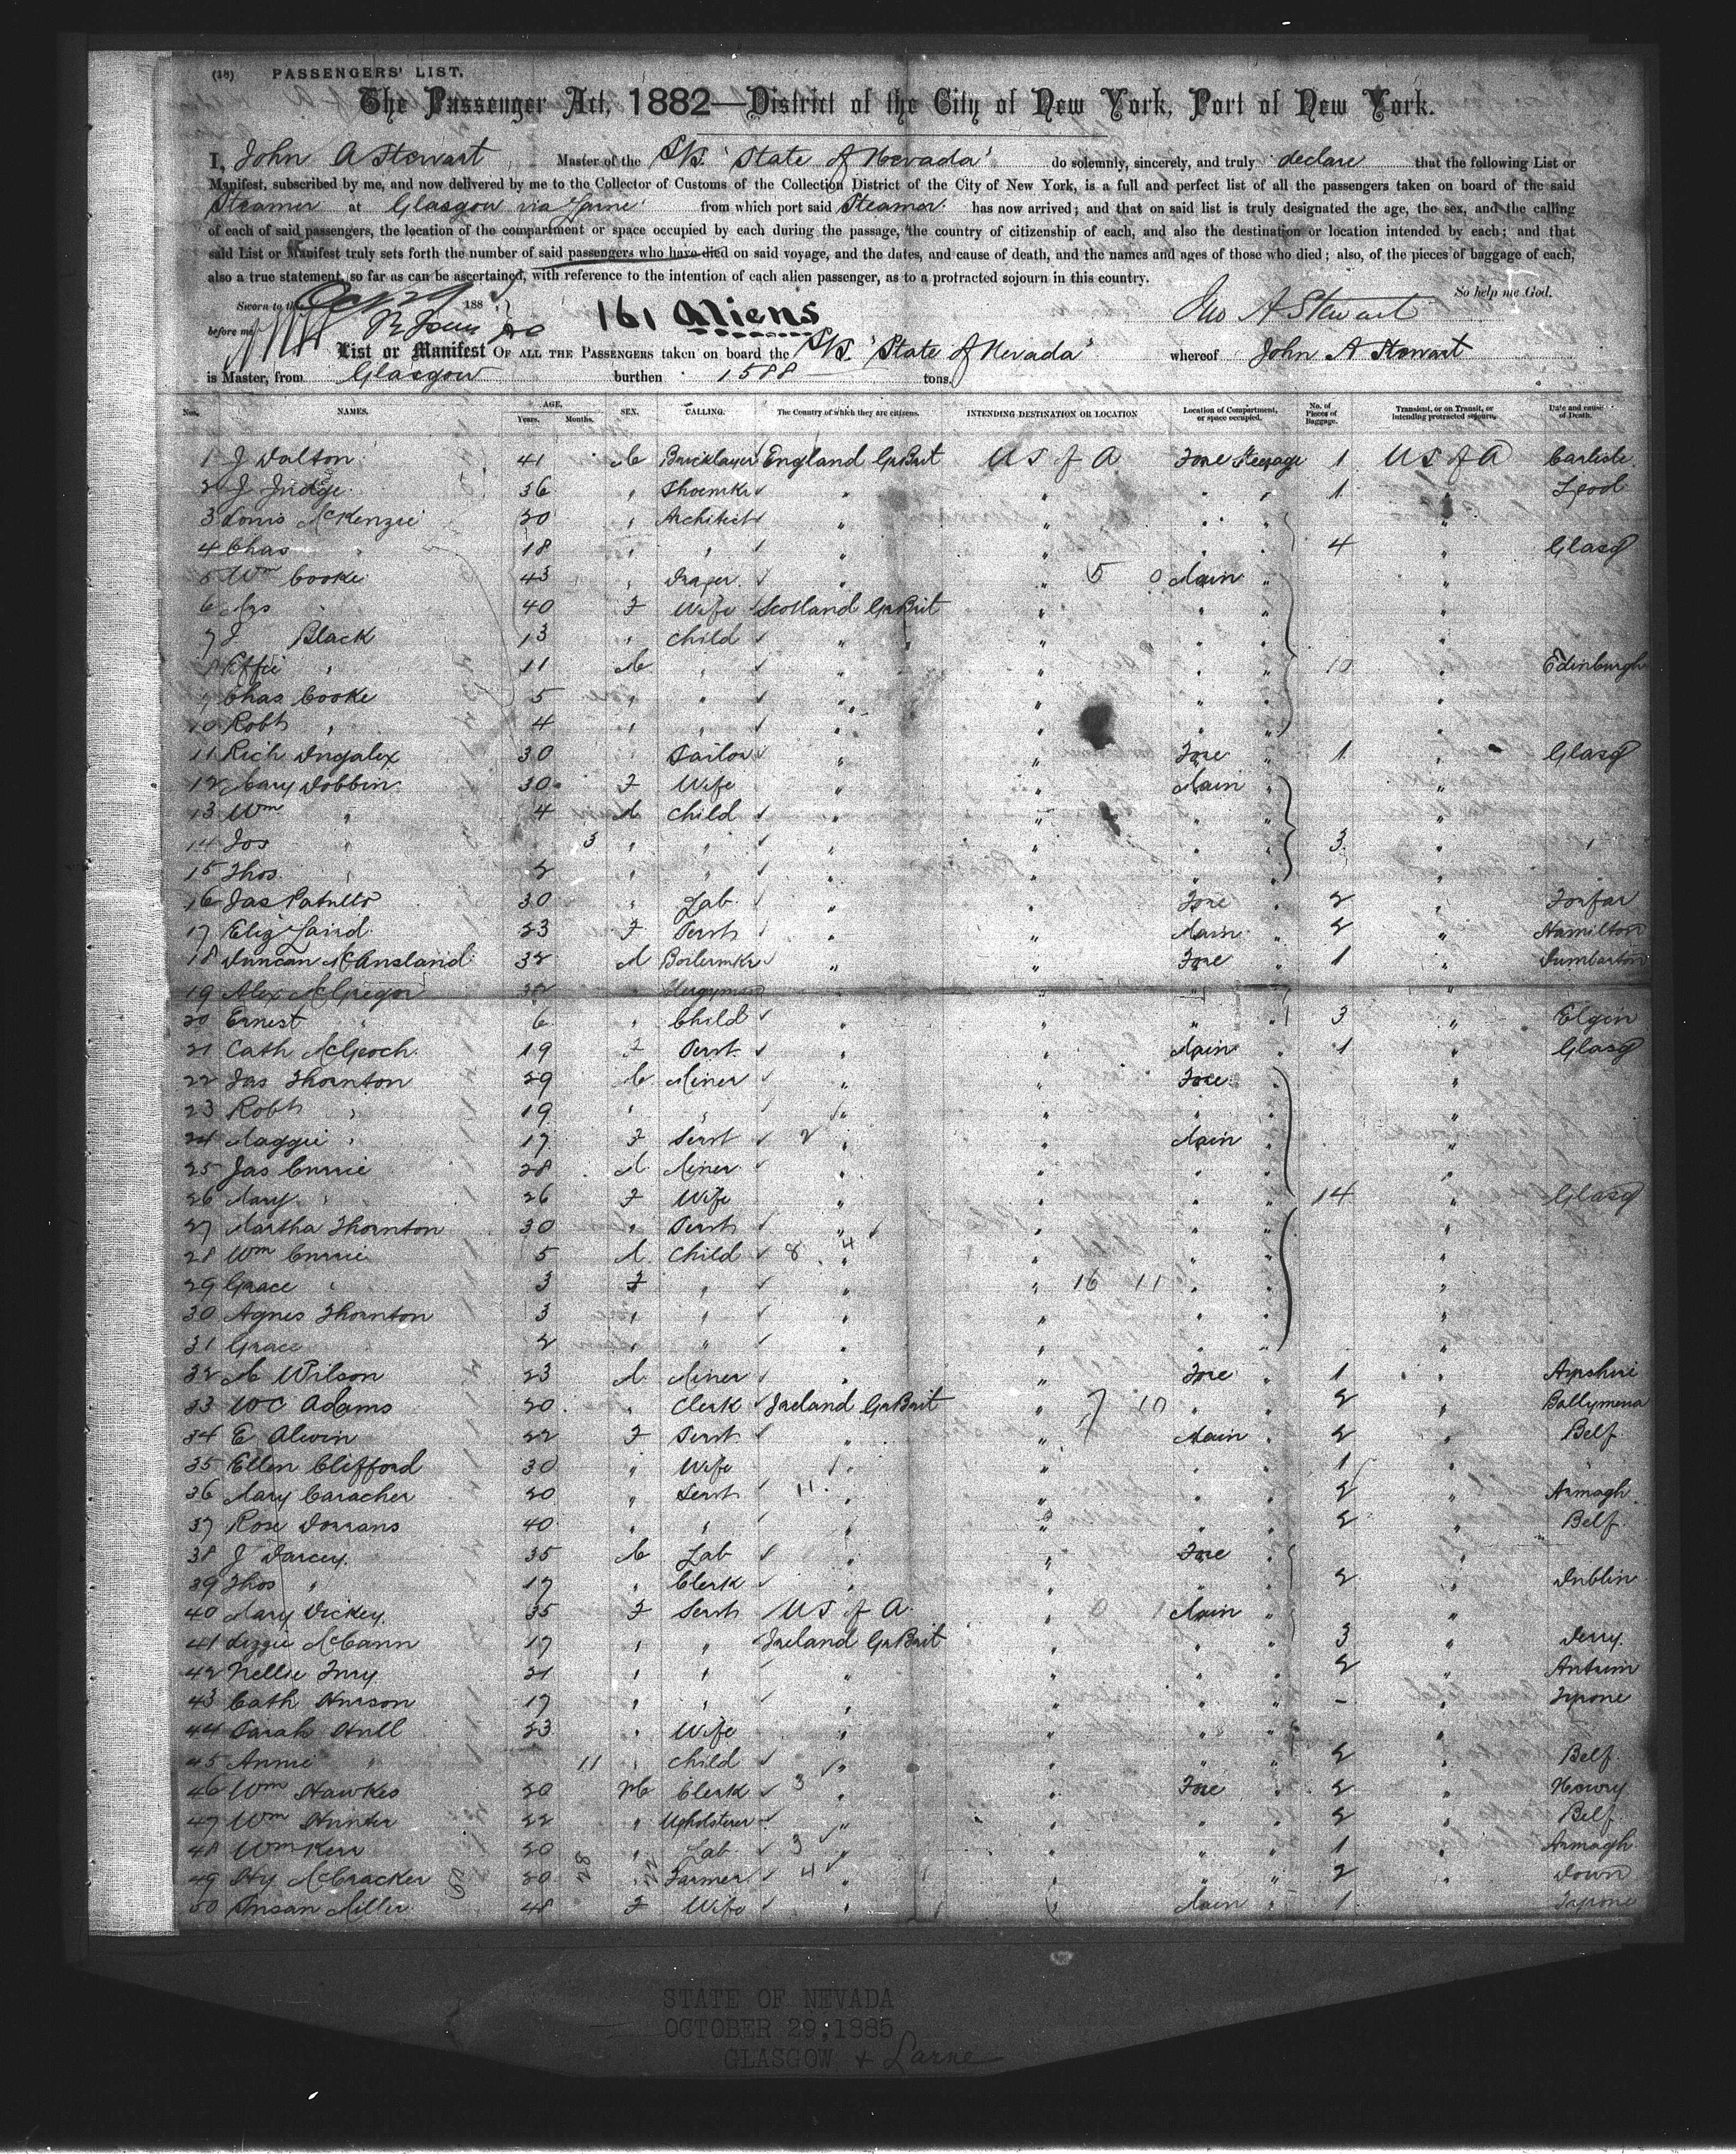 (18) PASSENGERS' LIST.
The Passenger Act, 1882—District of the City of New York, Port of New York.
I, John A Stewart Master of the S/S. "State of Nevada" do solemnly, sincerely, and truly declare that the following List or
Manifest, subscribed by me, and now delivered by me to the Collector of Customs of the Collection District of the City of New York, is a full and perfect list of all the passengers taken on board of the said
Steamer at Glasgow via Larne from which port said Steamer has now arrived; and that on said list is truly designated the age, the sex, and the calling
of each of said passengers, the location of the compartment or space occupied by each during the passage, the country of citizenship of each, and also the destination or location intended by each; and that
said List or Manifest truly sets forth the number of said passengers who have died on said voyage, and the dates, and cause of death, and the names and ages of those who died; also, of the pieces of baggage of each,
also a true statement, so far as can be ascertained, with reference to the intention of each alien passenger, as to a protracted sojourn in this country.
So help me God.
Sworn to the 188
before me
161 Aliens
Jno A Stewart
List or Manifest OF ALL THE PASSENGERS taken on board the S/S. "State of Nevada" whereof John A Stewart
is Master, from Glasgow burthen 1588 tons.
Nos. NAMES. AGE. Years. Months. SEX. CALLING. The Country of which they are citizens. INTENDING DESTINATION OR LOCATION Location of Compartment, or space occupied. No. of Pieces of Baggage. Transient, or on Transit, or intending protracted sojourn. Date and cause of Death.
1 J Dalton 41 M Bricklayer England Gr Brit U S of A Fore Steerage 1 U S of A Carlisle
2 J Judge 36 " Shoemkr " " " " 1 "
3 Louis McKenzie 20 " Architect " " " " "
4 Chas " 18 " " " " " " 4 " Glasg
5 Wm Cooke 43 " Draper " " 5 0 Main " "
6 Mrs " 40 F Wife Scotland Gr Brit " " " "
7 J Black 13 " Child " " " " "
8 Effie " 11 M " " " " " 10 " Edinburgh
9 Chas Cooke 5 " " " " " " "
10 Robt " 4 " " " " " " "
11 Rich 30 Tailor " " Fore " 1 " Glasg
12 Mary Dobbin 30 F Wife " " Main " "
13 Wm " 4 M Child " " " " "
14 Jos " 3 " " " " " " 3 " "
15 Thos " 2 " " " " " " "
16 Jas Patullo 30 " Lab " " Fore " 2 " Forfar
17 Eliz Laird 23 F Servt " " Main " 2 " Hamilton
18 Duncan McAusland 32 M Boilermkr " " Fore " 1 " Dumbarton
19 Alex McGregor 32 Clergyman " " " "
20 Ernest " 6 " Child " " " " 3 " Elgin
21 Cath McGeoch 19 F Servt " " Main " 1 " Glasg
22 Jas Thornton 29 M Miner " " Fore " "
23 Robt " 19 " " " " " " "
24 Maggie " 17 F Servt 2 " " Main " "
25 Jas Currie 28 M Miner " " " " "
26 Mary " 26 F Wife " " " " 14 " Glasg
27 Martha Thornton 30 " Servt " " " " "
28 Wm Currie 5 M Child 8 4 " " " " "
29 Grace " 3 F " " " 16 11 " " "
30 Agnes Thornton 3 " " " " " " "
31 Grace " 2 " " " " " " "
32 M Wilson 23 M Miner " " Fore " 1 " Ayrshire
33 WC Adams 20 " Clerk Ireland Gr Brit " 7 10 " " 2 " Ballymena
34 E Alwin 22 F Servt " " Main " 2 " Belf
35 Ellen Clifford 30 " Wife " " " " 1 "
36 Mary Caracher 20 " Servt 11 " " " " 2 " Armagh
37 Rose Dorrans 40 " " " " " " 2 " Belf
38 J Darcey 35 M Lab " " Fore " "
39 Thos " 17 " Clerk " " " " 2 " Dublin
40 Mary Dickey 35 F Servt U S of A " 0 1 Main " "
41 Lizzie McCann 17 " " Ireland Gr Brit " " " 3 " Derry
42 Nellie 21 " " " " " " 2 " Antrim
43 Cath Hurson 17 " " " " " " - " Tyrone
44 Sarah Hull 23 " Wife " " " " "
45 Annie " 11 " Child " " " " 2 " Belf
46 Wm Hawkes 20 M Clerk 3 " " Fore " 2 " Newry
47 Wm Hunter 22 " Upholsterer " " " " 2 " Belf
48 Wm Kerr 20 " Lab 3 " " " " 1 " Armagh
49 Hy McCracken 20 " Farmer 4 " " " " 2 " Down
50 Susan Miller 48 F Wife " " Main " 1 " Tyrone
STATE OF NEVADA
OCTOBER 29, 1885
GLASGOW & Larne